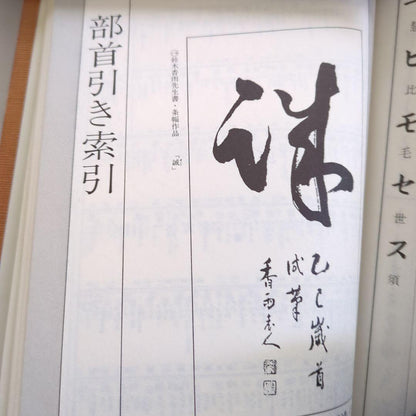 ヒ
比
モ
毛
セ
世
ス
須
誠
乙巳歳首
試筆
香雨老人
鈴木香雨先生書・条幅作品 「誠」
部首引き索引